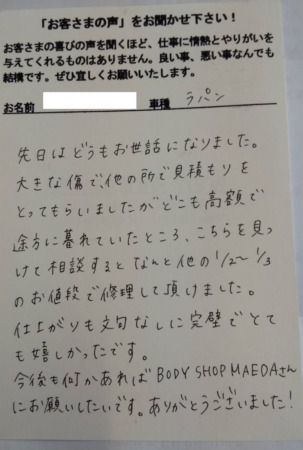 「お客さまの声」をお聞かせ下さい!
お客さまの喜びの声を聞くほど、仕事に情熱とやりがいを
与えてくれるものはありません。良い事、悪い事なんでも
結構です。ぜひ宜しくお願いいたします。
お名前 車種 ラパン
先日はどうもお世話になりました。
大きな傷で、他の所で見積もりを
とってもらいましたがどこも高額で
途方に暮れていたところ、こちらを見っ
けて相談するとなんと他の1/2〜1/3
のお値段で修理して頂けました。
仕上がりも文句なしに完璧でとて
も嬉しかったです。
今後も何かあればBODY SHOP MAEDAさん
にお願いしたいです。ありがとうございました!